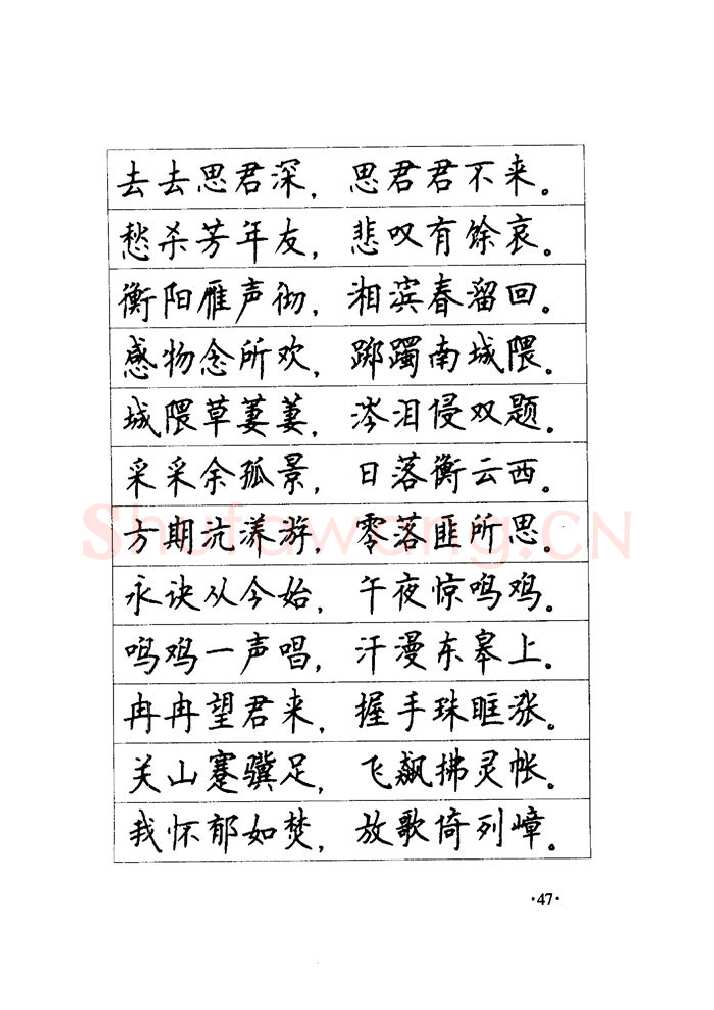 去去思君深，思君君不来。
愁杀芳年友，悲叹有馀哀。
衡阳雁声彻，湘滨春溜回。
感物念所欢，踯躅南城隈。
城隈草萋萋，涔泪侵双题。
采采余孤景，日落衡云西。
方期沆漾游，零落匪所思。
永诀从今始，午夜惊鸣鸡。
鸣鸡一声唱，汗漫东皋上。
冉冉望君来，握手珠眶涨。
关山蹇骥足，飞飙拂灵帐。
我怀郁如焚，放歌倚列嶂。
·47·
Shufawang.CN